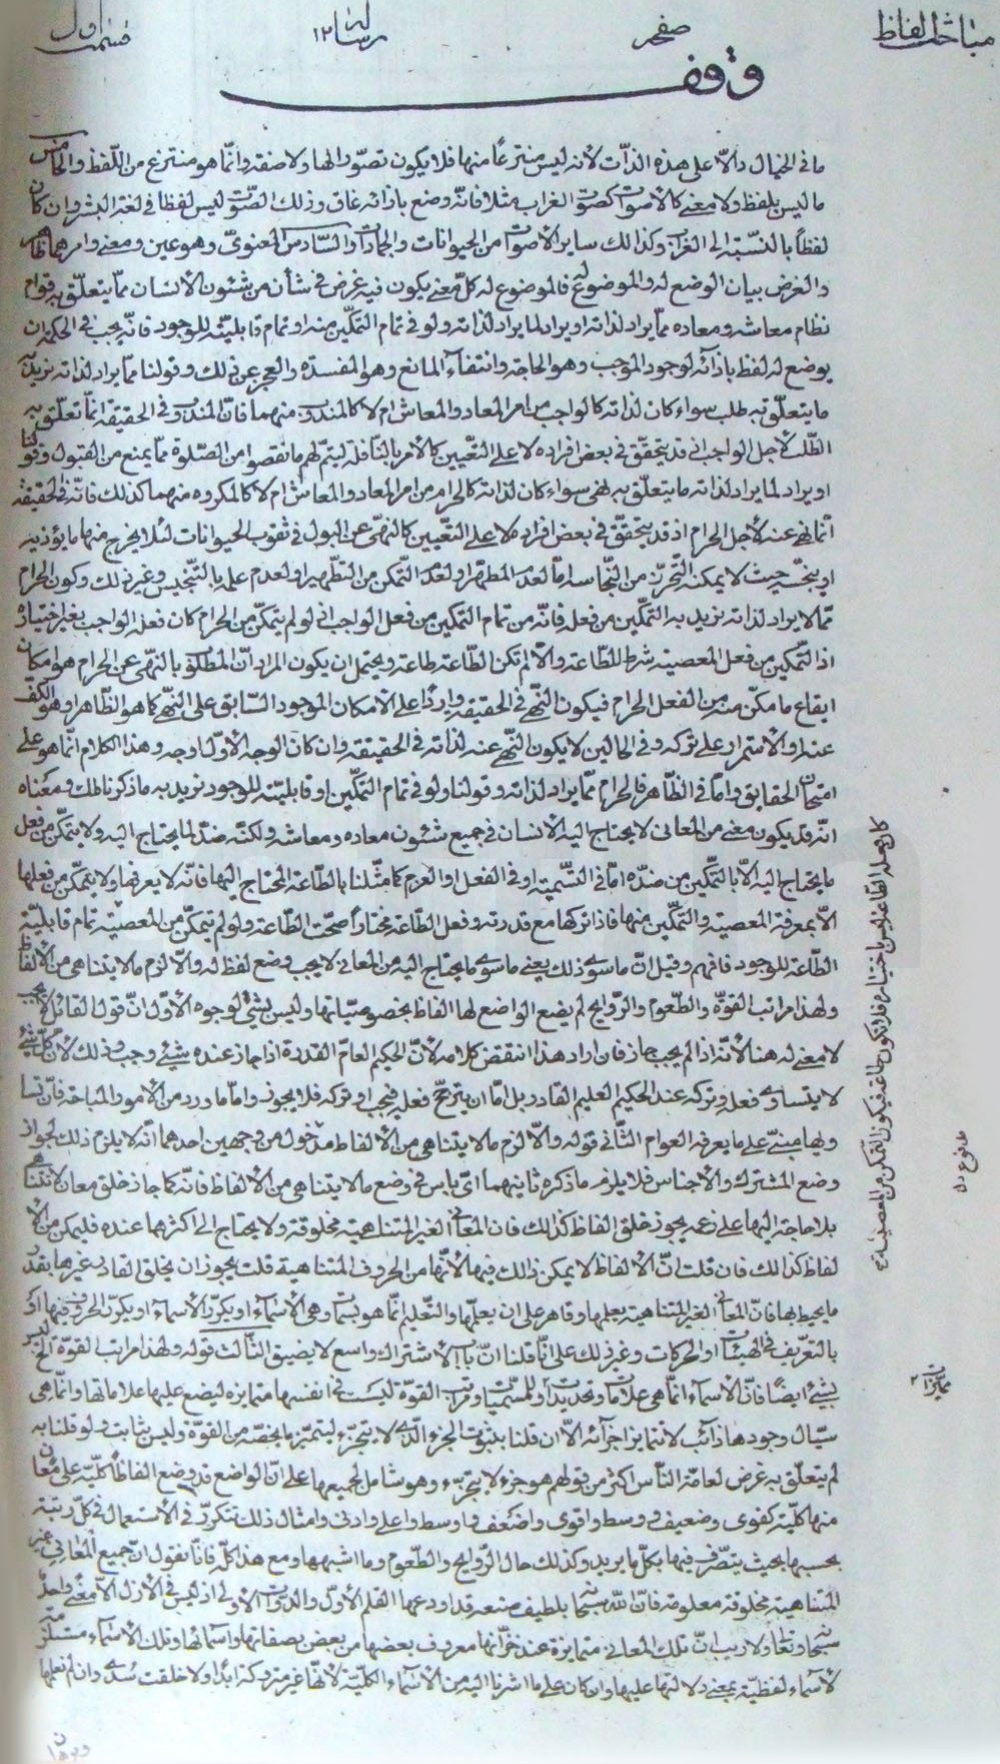 مباحث الفاظ
صفحه
رساله ١٢
قسمت اول
وقف
ما فى الخيال دالّا على هذه الذّات لأنه ليس منتزعًا منها فلا يكون تصوّرا لها ولا صفة وانّما هو منتزع من اللّفظ والخامس
ما ليس بلفظ ولا معنى كالأصوات كصوت الغراب مثلا فانّه وضع بازائه غاق وذلك الصّوت ليس لفظا فى لغة البشر وان كان
لفظًا بالنّسبة الى الغراب وكذلك ساير الأصوات من الحيوانات والجمادات والسّادس المعنوىّ وهو عين ومعنى وامرهما ظاهر
والغرض بيان الوضع له والموضوع له فالموضوع له كلّ معنى يكون فيه غرض فى شأن من شئون الانسان ممّا يتعلّق به قوام
نظام معاشه ومعاده ممّا يراد لذاته او يراد لما يراد لذاته ولو فى تمام التمكّين منه او تمام قابليّته للوجود فانّه يجب فى الحكمة ان
يوضع له لفظ بازائه لوجود الموجب وهو الحاجة وانتفاء المانع وهو المفسدة والعجز عن ذلك وقولنا ممّا يراد لذاته نريد به
ما يتعلّق به طلب سواء كان لذاته كالواجب من امر المعاد والمعاش ام لا كالمندوب منهما فانّ المندوب فى الحقيقة انّما تعلّق به
الطّلب لأجل الواجب اذ قد يتحقّق فى بعض افراده لا على التّعيين كالأمر بالنّافلة ليتمّ لهم ما نقصوا من الصّلوة ممّا يمنع من القبول وقولنا
او يراد لما يراد لذاته ما يتعلّق به نهى سواء كان لذاته كالحرام من امر المعاد والمعاش ام لا كالمكروه منهما كذلك فانّه فى الحقيقة
انّما نهى عنه لأجل الحرام اذ قد يتحقّق فى بعض افراده لا على التّعيين كالنّهى عن البول فى ثقوب الحيوانات لئلا يخرج منها ما يؤذيه
او ينجّسه حيث لا يمكنه التّحرّز من النّجاسة امّا لعدم المطهّر او لعدم التّمكّن من التّطهير او لعدم علمه بالتّنجيس وغير ذلك وكون الحرام
ممّا لا يراد لذاته نريد به التّمكين من فعله فانّه من تمام التمكين من فعل الواجب اذ لو لم يتمكّن من الحرام كان فعله الواجب بغير اختياره
اذ التّمكين من فعل المعصية شرط للطّاعة والّا لم تكن الطّاعة طاعة ويحتمل ان يكون المراد انّ المطلوب بالنّهى عن الحرام هو امكان
ايقاع ما مكّن منه من الفعل الحرام فيكون النّهى فى الحقيقة واردًا على الامكان الموجود السّابق على النّهى كما هو الظّاهر او هو الكفّ
عنه او الاستمرار على تركه وفى الحالين لا يكون النّهى عنه لذاته فى الحقيقة وان كان الوجه الأوّل اوجه وهذا الكلام انّما هو على
امتحان الحقايق وامّا فى الظّاهر فالحرام ممّا يراد لذاته وقولنا ولو فى تمام التمكّين او قابليّته للوجود نريد به ما ذكرنا لك ومعناه
انّه قد يكون معنى من المعانى لا يحتاج اليه الانسان فى جميع شئون معاده ومعاشه ولكنّه ضدّ لما يحتاج اليه ولا يتمكّن من فعل
ما يحتاج اليه الّا بالتّمكين من ضدّه امّا فى التّسمية او فى الفعل او العزم كما مثّلنا بالطّاعة المحتاج اليها فانّه لا يعرفها ولا يتمكّن من فعلها
الّا بمعرفة المعصية والتّمكّين منها فاذا تركها مع قدرته وفعل الطّاعة مختارًا صحّت الطّاعة ولو لم يتمكّن من المعصية تمام قابليّة
الطّاعة للوجود فافهم وقيل انّ ما سوى ذلك يعنى ما سوى ما يحتاج اليه من المعانى لا يجب وضع لفظ له والّا لزم ما لا يتناهى من الألفاظ
ولهذا مراتب القوّة والطّعوم والرّوايح لم يضع الواضع لها الفاظًا بخصوصيّاتها وليس بشئ لوجوه الأوّل انّ قول القائل لا يجب
لا معنى له هنا لأنّه اذا لم يجب جاز فان اراد هذا انتقض كلامه لأنّ الحكيم العامّ القدرة اذا جاز عنده شئ وجب وذلك لأنّ كلّ شئ
لا يتساوى فعله وتركه عند الحكيم العليم القادر بل امّا ان يترجّح فعله فيجب او تركه فلا يجوز وامّا ما ورد من الأمور المباحة فانّ تساو
ويها مبنىّ على ما يعرفه العوام الثّانى قوله والّا لزم ما لا يتناهى من الألفاظ مدخول من وجهين احدهما انّه لا يلزم ذلك لجواز
وضع المشترك والأجناس فلا يلزم ما ذكره ثانيهما اىّ باس فى وضع ما لا يتناهى من الألفاظ فانّه كما جاز خلق معان لا تتناهى
بلا حاجة اليها على زعمه يجوز خلق الفاظ كذلك فان المعانى الغير المتناهية مخلوقة ولا يحتاج الى اكثرهما عنده فليمكن من الأ
لفاظ كذلك فان قلت انّ الألفاظ لا يمكن ذلك فيها لأنّها من الحروف المتناهية قلت يجوز ان يخلق القادر غيرها بقدر
ما يحيط بها فانّ المعانى الغير المتناهية يعلمها وقاهر على ان يعلّمها والتّعليم انّما هو بسمات وهى الأسماء او يكرّر الأسماء او يكرّر الحروف فيها او
بالتّعريف فى الهيئات او الحركات وغير ذلك على انّا قلنا انّ باب الاشتراك واسع لا يضيق الثّالث قوله ولهذا مراتب القوة الخ ليس
بشئ ايضًا فانّ الأسماء انّما هى علامات وتحديدات للمسمّيات ومراتب القوّة ليست فى انفسها متمايزة ليضع عليها علاماتها وانّما هى
سيّال وجودها ذائب لا تتمايز اجزآئه الّا ان قلنا بثبوت الجزء الذى لا يتجزّء ليتميّز ما يخصّه من القوّة وليس بثابت ولو قلنا به
لم يتعلّق به غرض لعامّة النّاس اكثر من قولهم هو جزء لا يتجزّء وهو شامل لجميعها على انّ الواضع قد وضع الفاظًا كلّيّة على معان
منها كلّيّة كقوىّ وضعيف ووسط واقوى واضعف واوسط واعلى وادنى وامثال ذلك تتكرّر فى الأستعمال فى كلّ رتبة
بحسبها بحيث يتصّرف فيها بكلّ ما يريد وكذلك حال الرّوايح والطّعوم وما اشبهها ومع هذا كلّه فانّا نقول انّ جميع المعانى غير
المتناهية مخلوقة معلومة فانّ اللّه سبحانه بلطيف صنعه قد اودعها القلم الأوّل والدّواة الأولى اذ ليس فى الأزل الّا معنى واحد
سبحانه وتعالى ولا ريب انّ تلك المعانى متمايزة عند خزّانها معروف بعضها من بعض بصفاتها واسمائها وتلك الأسماء مستلزمة
لأسماء لفظيّة بمعنى دلالتها عليها وان كان على ما اشرنا اليه من الأسماء الكلّيّة لأنّها غير متروكة ابدًا ولا خلقت سدى وان لم نعلمها